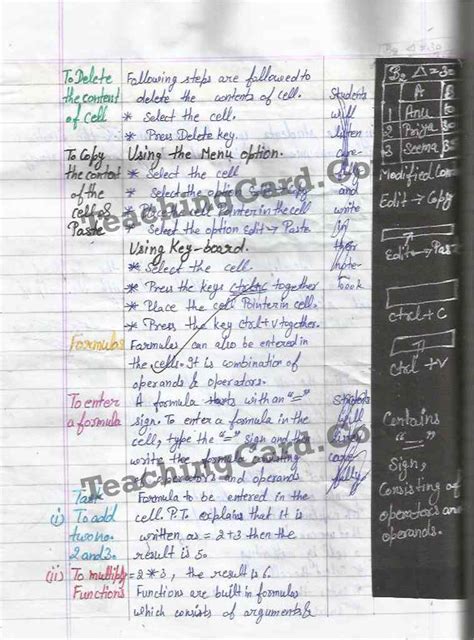 To Delete
the content
of Cell
Following steps are followed to
delete the contents of cell.
* Select the cell.
* Press Delete key.
To Copy
the content
of the
cell &
Paste
Using the Menu option.
* Select the cell
* Select the option Edit → Copy
* Place the cell pointer in the cell
* Select the option Edit → Paste
Using Key-board.
* Select the cell.
* Press the keys ctrl+c together
* Place the cell Pointer in cell.
* Press the key ctrl+v together.
Formulas
Formulas can also be entered in
the cells. It is combination of
operands & operators.
To enter
a formula
A formula starts with an "="
sign. To enter a formula in the
cell, type the "=" sign and then
write the formula consisting
operators and operands
Task
(i) To add
two no.
2 and 3.
Formula to be entered in the
cell. P.T. explains that it is
written as = 2+3 then the
result is 5.
(ii) To multiply
= 2*3, the result is 6.
Functions
Functions are built in formulas
which consists of arguments &
Students
will
listen
care-
and
write
in
their
note-
book
Students
will
care-
fully
B2 △ = 30
A B
1 Anu 50
2 Priya 30
3 Seema
Modified
Edit → Copy
Edit → Paste
Ctrl + C
Ctrl + V
Contains
"="
Sign,
Consisting of
operators and
operands.
TeachingCard.Com
TeachingCard.Com